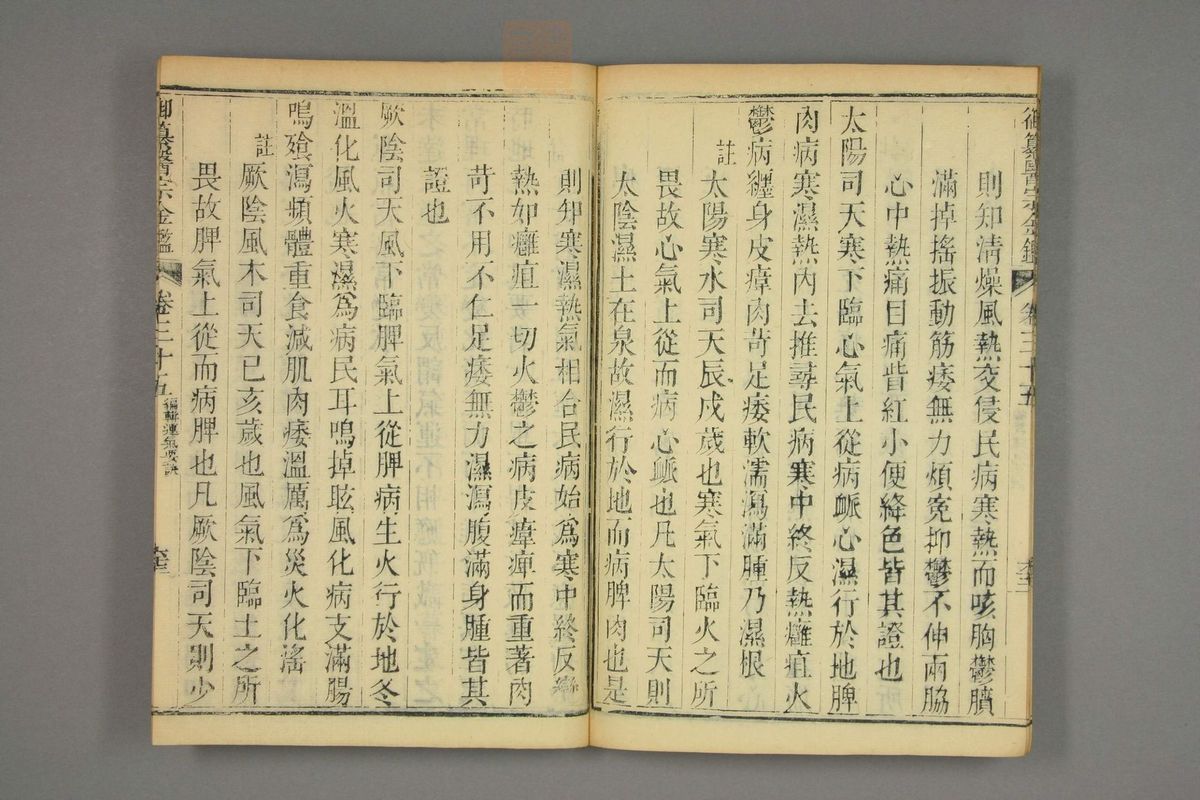 御纂醫宗金鑑
卷三十五
則知清燥風熱交侵民病寒熱而咳胸鬱臏
滿掉搖振動筋痿無力煩寃抑鬱不伸兩脇
心中熱痛目痛眥紅小便絳色皆其證也
太陽司天寒下臨心氣上從病脈心濕行於地脾
肉病寒濕熱內去推尋民病寒中終反熱癰疽火
鬱病纏身皮㾦肉苛足痿軟濡瀉滿腫乃濕根
註
太陽寒水司天辰戌歲也寒氣下臨火之所
畏故心氣上從而病心脈也凡太陽司天則
太陰濕土在泉故濕行於地而病脾肉也是
則知寒濕熱氣相合民病始爲寒中終反變
熱如癰疽一切火鬱之病皮㾦痺而重著肉
苛不用不仁足痿無力濕瀉腹滿身腫皆其
證也
厥陰司天風下臨脾氣上從脾病生火行於地冬
溫化風火寒濕爲病民耳鳴掉眩風化病支滿腸
鳴飱瀉頻體重食減肌肉痿溫厲爲災火化淫
註
厥陰風木司天巳亥歲也風氣下臨土之所
畏故脾氣上從而病脾也凡厥陰司天則少
御纂醫宗金鑑
卷三十五
編輯運氣要訣